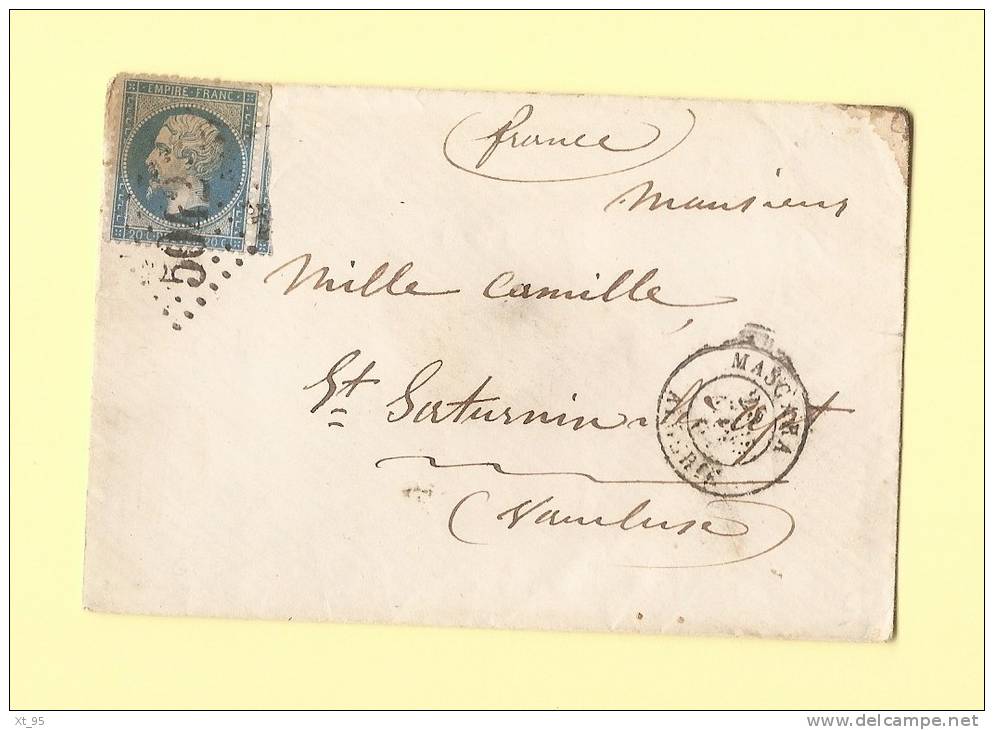 EMPIRE FRANC
20 C 20 C
(france)
Monsieur
Mille Camille,
St Saturnin
(Vaucluse)
MASCARA
ALGERIE
Xt_95
www.delcampe.net